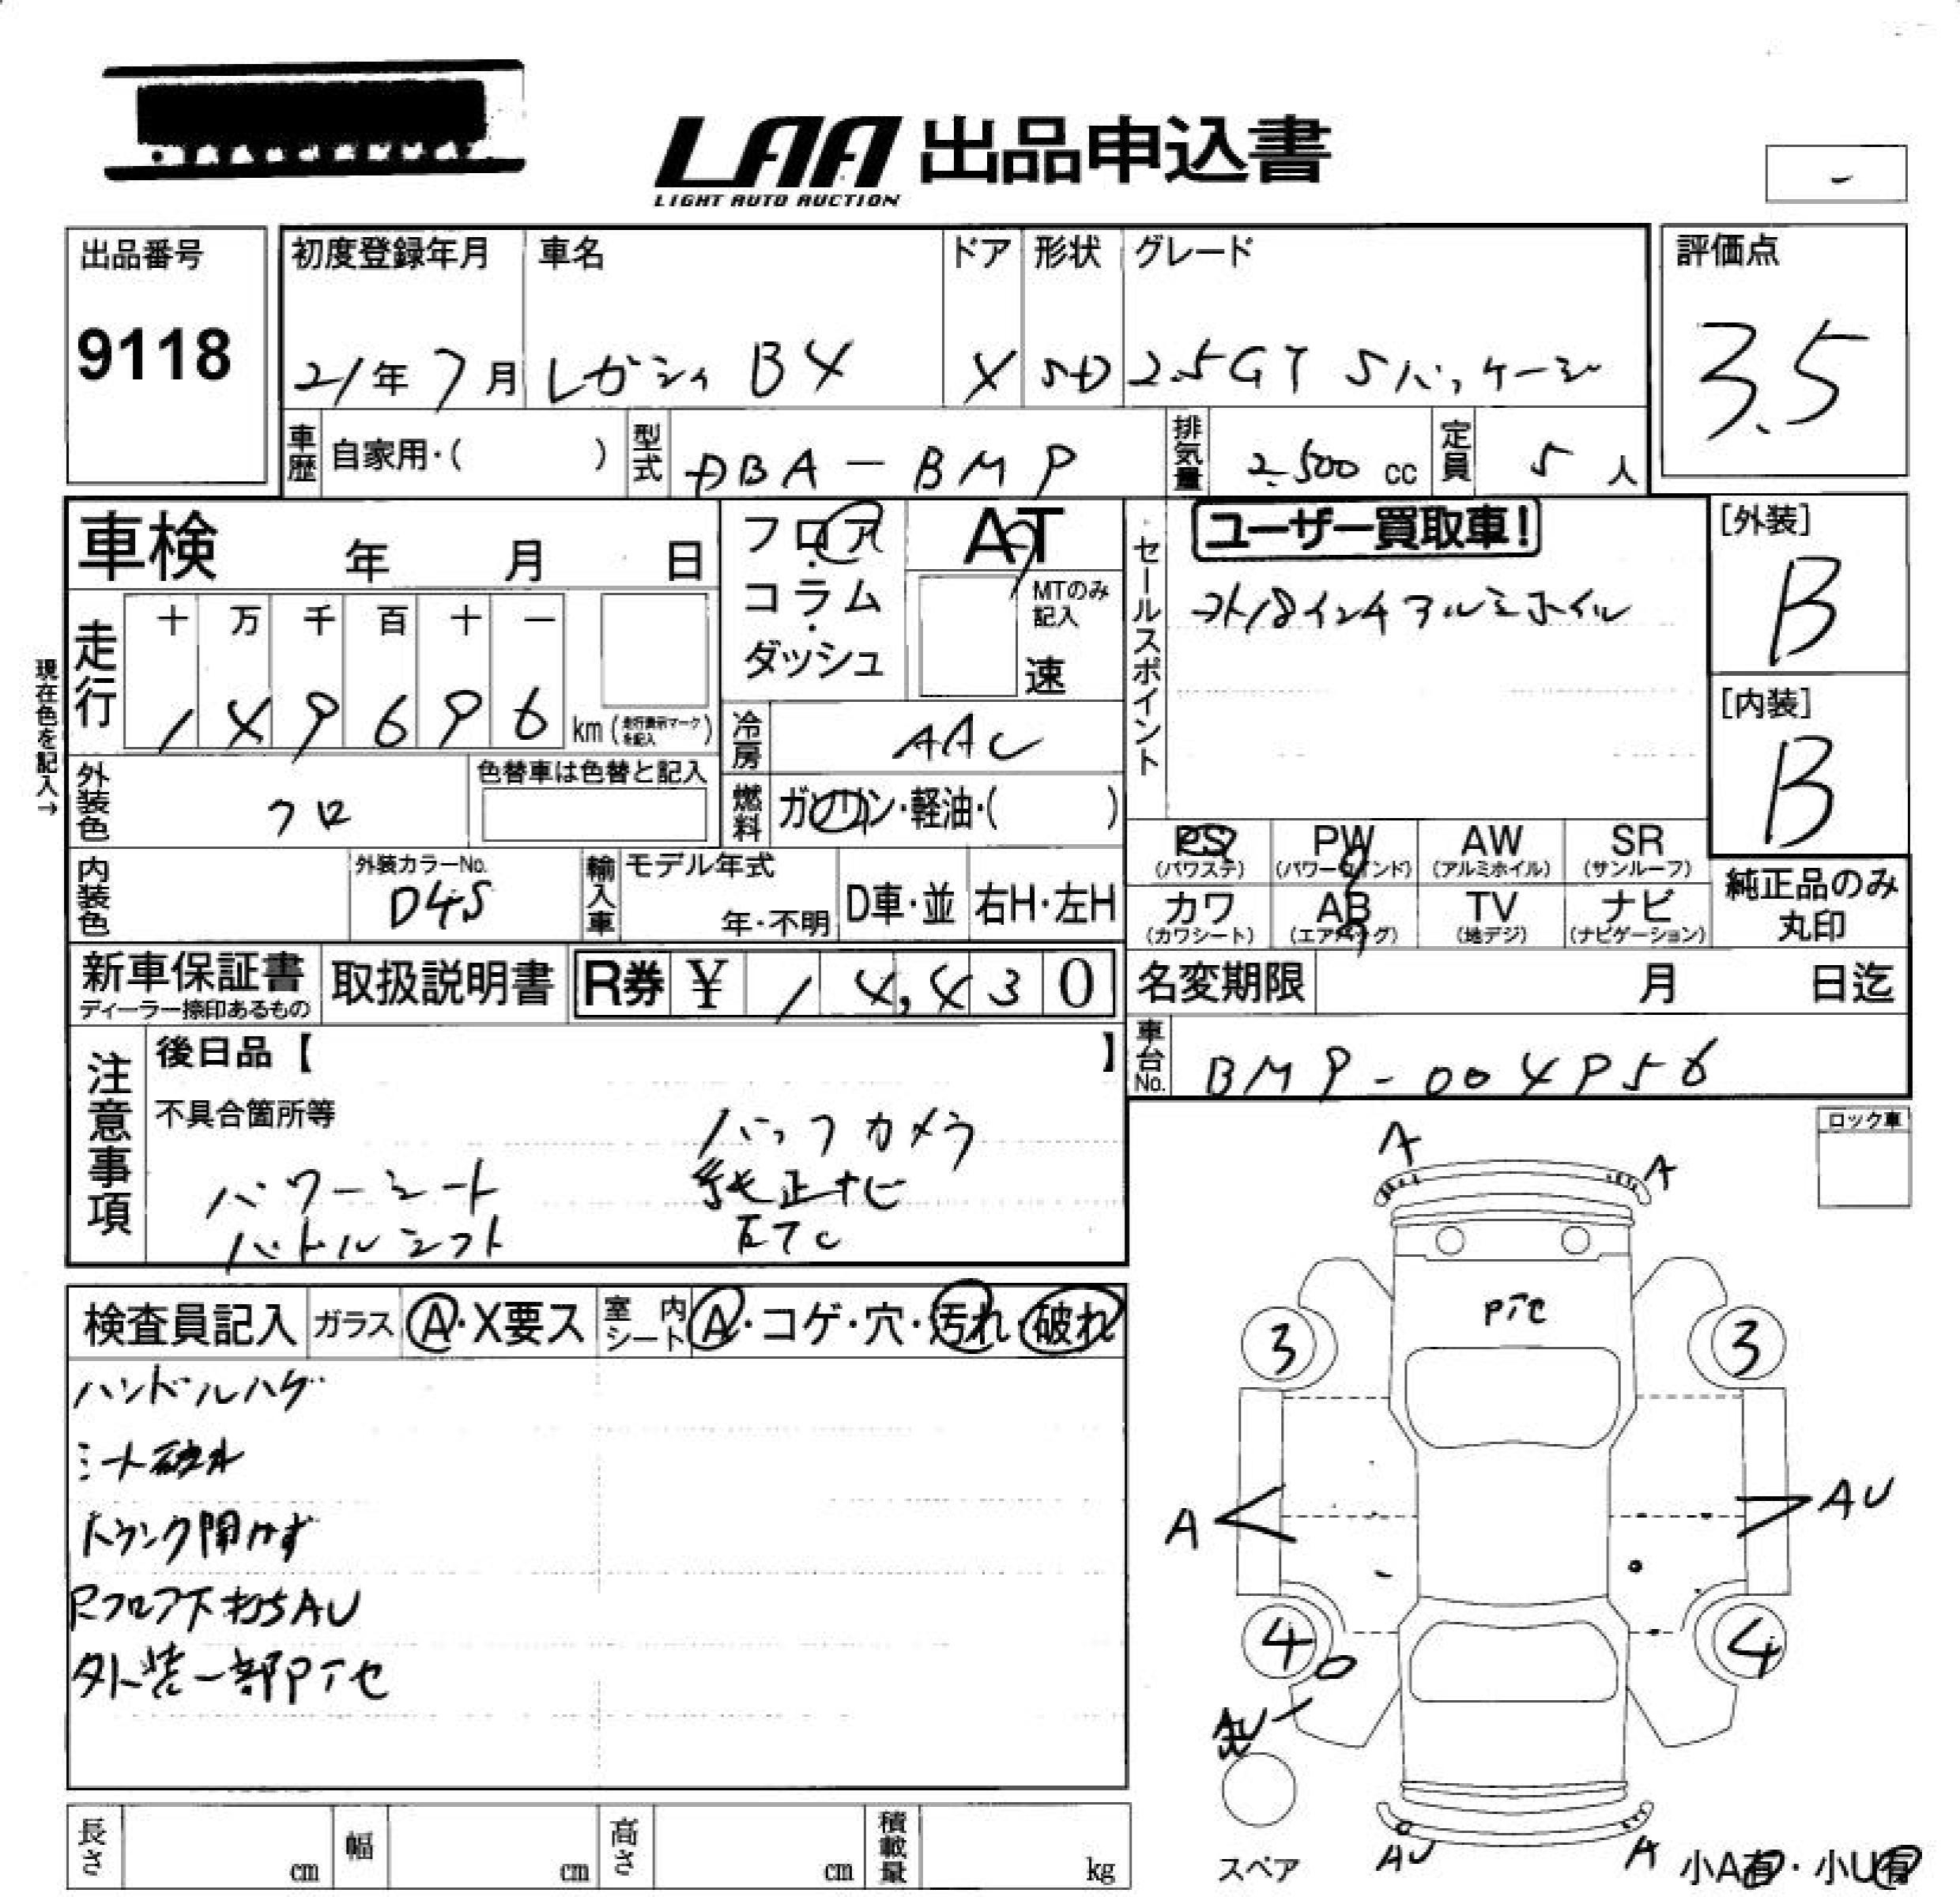 LAA 出品申込書
LIGHT AUTO AUCTION
-
出品番号
9118
初度登録年月
21年7月
車名
レガシィ B4
ドア
4
形状
SD
グレード
2.5GT Sパッケージ
評価点
3.5
車歴
自家用・( )
型式
DBA-BM9
排気量
2500 cc
定員
5 人
車検 年 月 日
フロア・コラム・ダッシュ
AT
MTのみ記入
速
セールスポイント
ユーザー買取車!
外18インチアルミホイル
[外装]
B
[内装]
B
現在色を記入→
走行
十 万 千 百 十 一
149696 km (走行表示マークを記入)
冷房
AAC
外装色
クロ
色替車は色替と記入
燃料
ガソリン・軽油・( )
PS (パワステ)
PW (パワーウインド)
AW (アルミホイル)
SR (サンルーフ)
カワ (カワシート)
AB (エアバッグ)
TV (地デジ)
ナビ (ナビゲーション)
純正品のみ丸印
内装色
外装カラーNo.
D4S
輸入車
モデル年式
年・不明
D車・並
右H・左H
新車保証書
ディーラー捺印あるもの
取扱説明書
R券 ¥ 14,430
名変期限 月 日迄
車台No.
BM9-004956
注意事項
後日品【 】
不具合箇所等
バックカメラ
パワーシート 純正ナビ
パドルシフト ETC
ロック車
検査員記入
ガラス
A・X要ス
室内シート
A・コゲ・穴・汚れ・破れ
ハンドルハゲ
シート破れ
トランク開かず
Rフロア下打ちAU
外装一部Pアセ
A
A
Pアセ
3
3
A
AU
4
4
AU
スペア
AU
A
小A有・小U有
長さ cm
幅 cm
高さ cm
積載量 kg